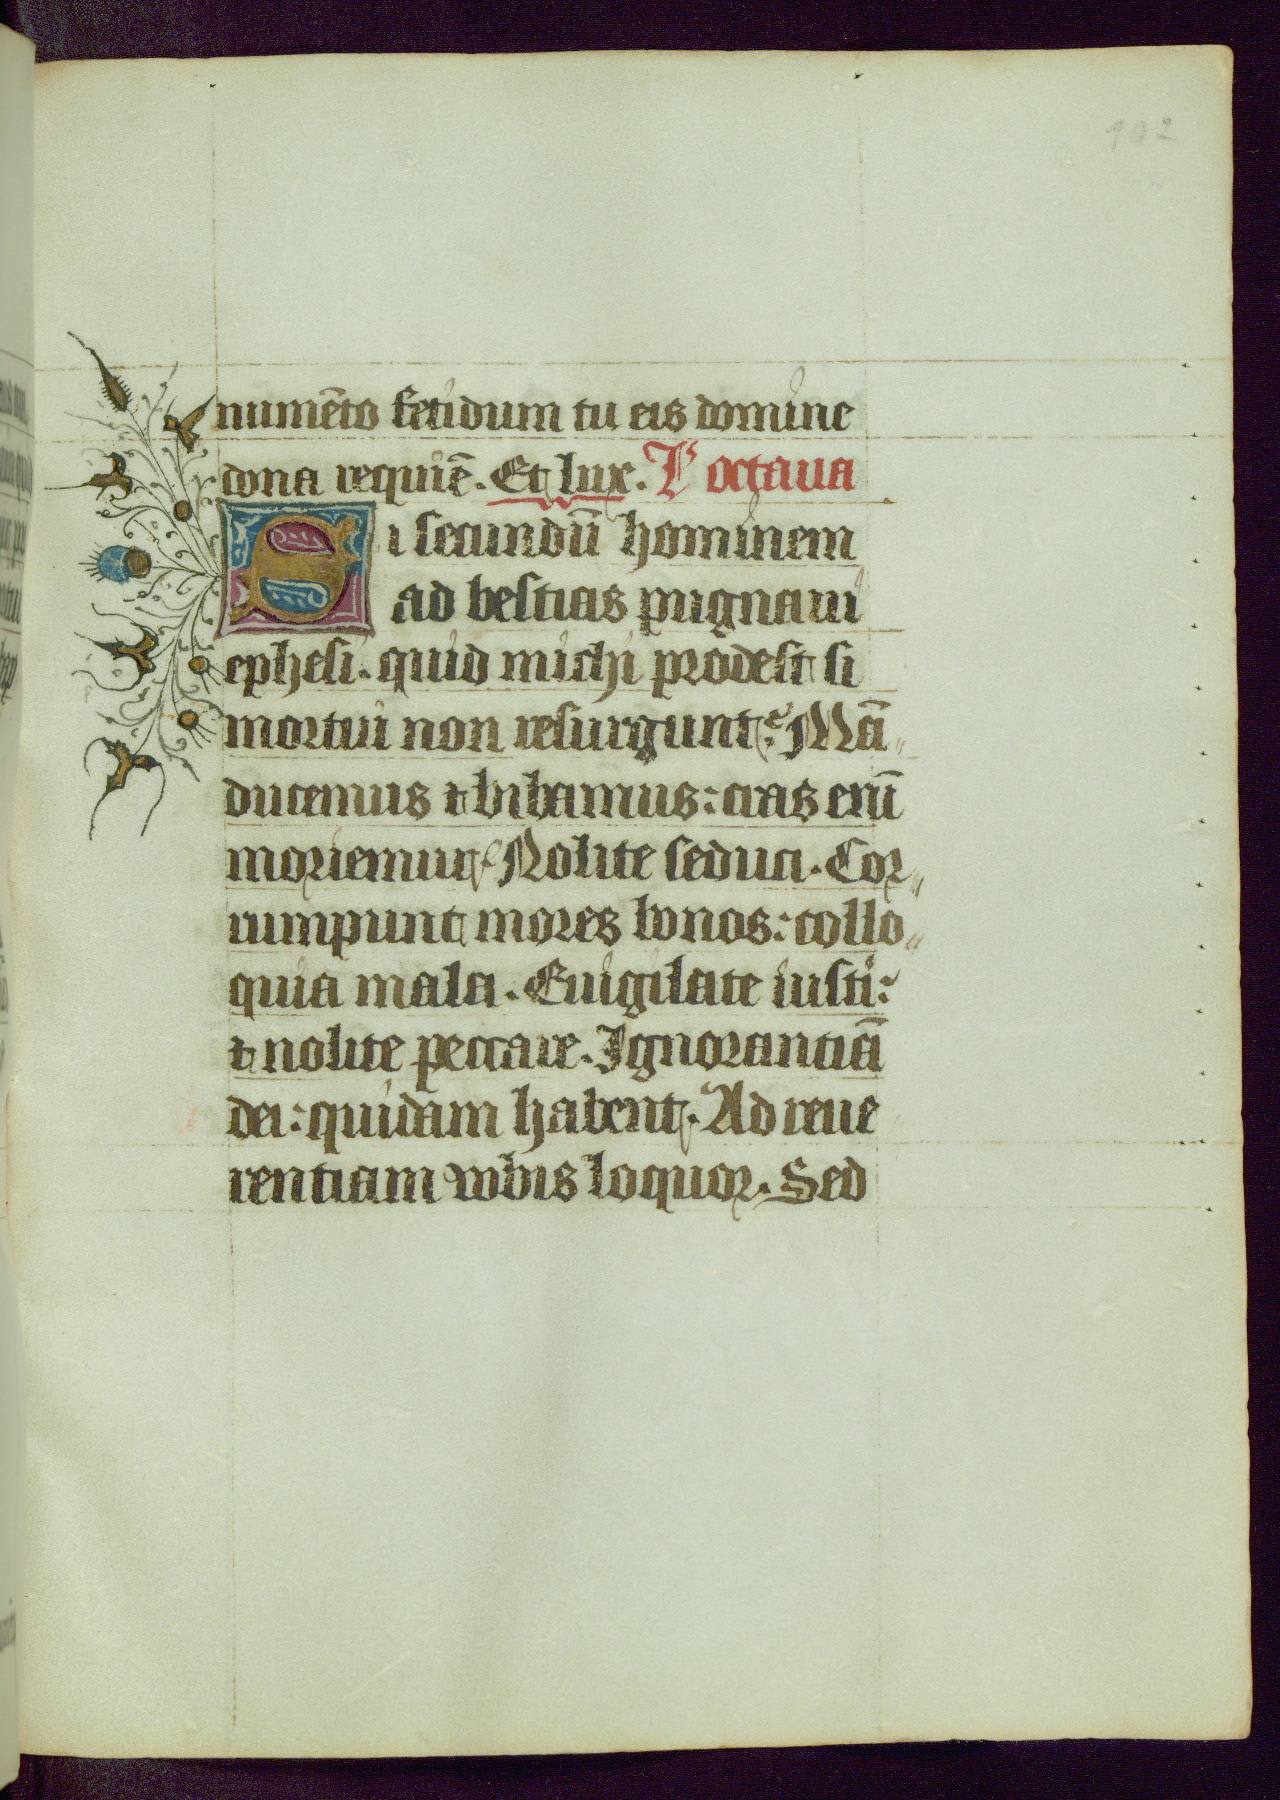 102
numēto fetidum tu eis domine
dona requiē. Et lux. L' octaua
Si secundū hominem
ad bestias pugnaui
ephesi. quid michi prodest si
mortui non resurgunt? Mā
ducemus ⁊ bibamus: cras enī
moriemur. Nolite seduci. Cor
rumpunt mores bonos: collo
quia mala. Euigilate iusti:
⁊ nolite peccare. Ignorantiā
dei: quidam habent. Ad reue
rentiam vobis loquor. Sed